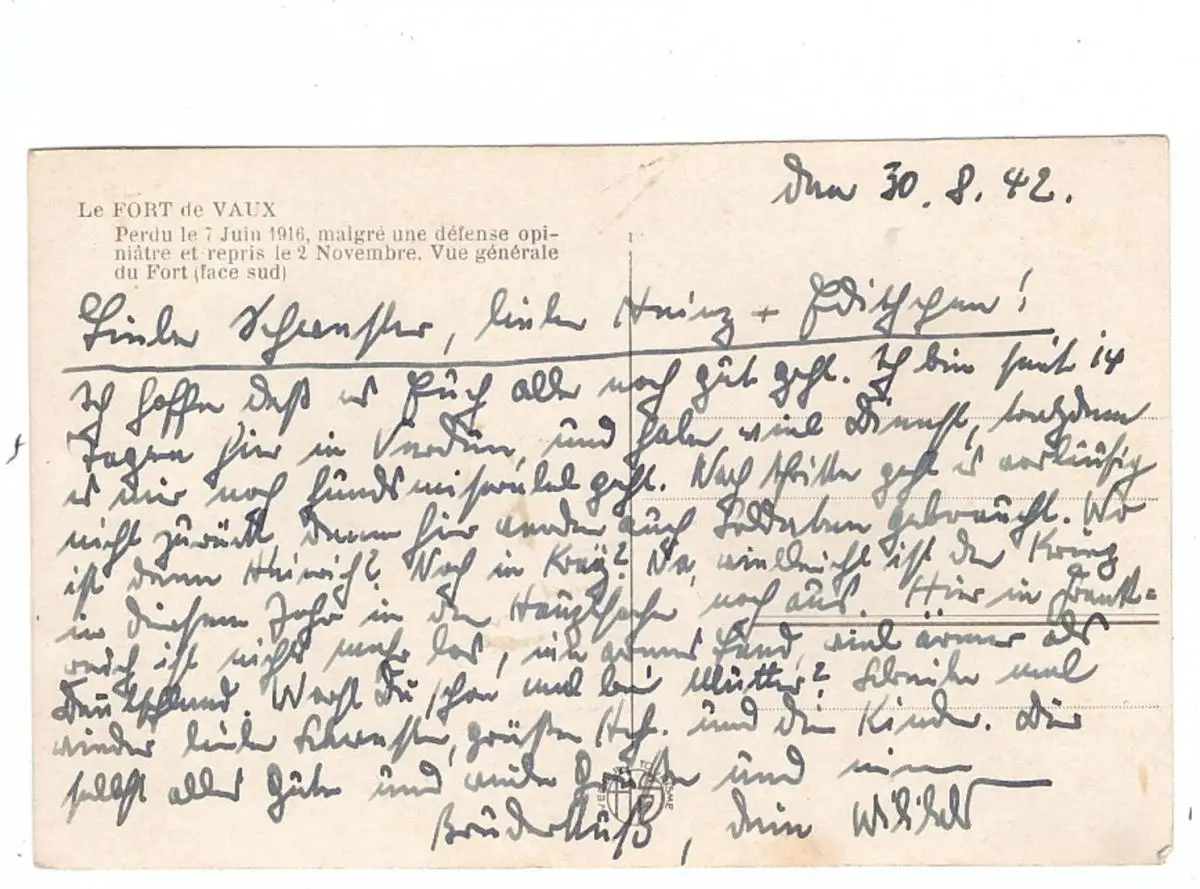 den 30.8.42.
Le FORT de VAUX
Perdu le 7 Juin 1916, malgré une défense opi-
niâtre et repris le 2 Novembre. Vue générale
du Fort (face sud)
Liebe Schwester, lieber Heinz + Edithchen!
Ich hoffe daß es Euch allen noch gut geht. Ich bin seit 14
Tagen hier in Verdun, und habe viel Dienst, trotzdem
es mir noch hundsmiserabel geht. Nach geht es vorläufig
nicht zurück denn hier werden auch Soldaten gebraucht. Wo
ist denn Heinrich? Noch in? Na, vielleicht ist der Krieg
in diesem Jahr in der Hauptsache noch aus. Hier in Frank=
reich ist nichts mehr los, ein armes Land, viel ärmer als
Deutschland. Warst Du schon mal bei Mutter? Schreibe mal
wieder liebe Schwester, grüße und die Kinder. Dir
selbst alles Gute und viele Grüße und einen
Bruderkuß, dein
VERDUN TOURISME